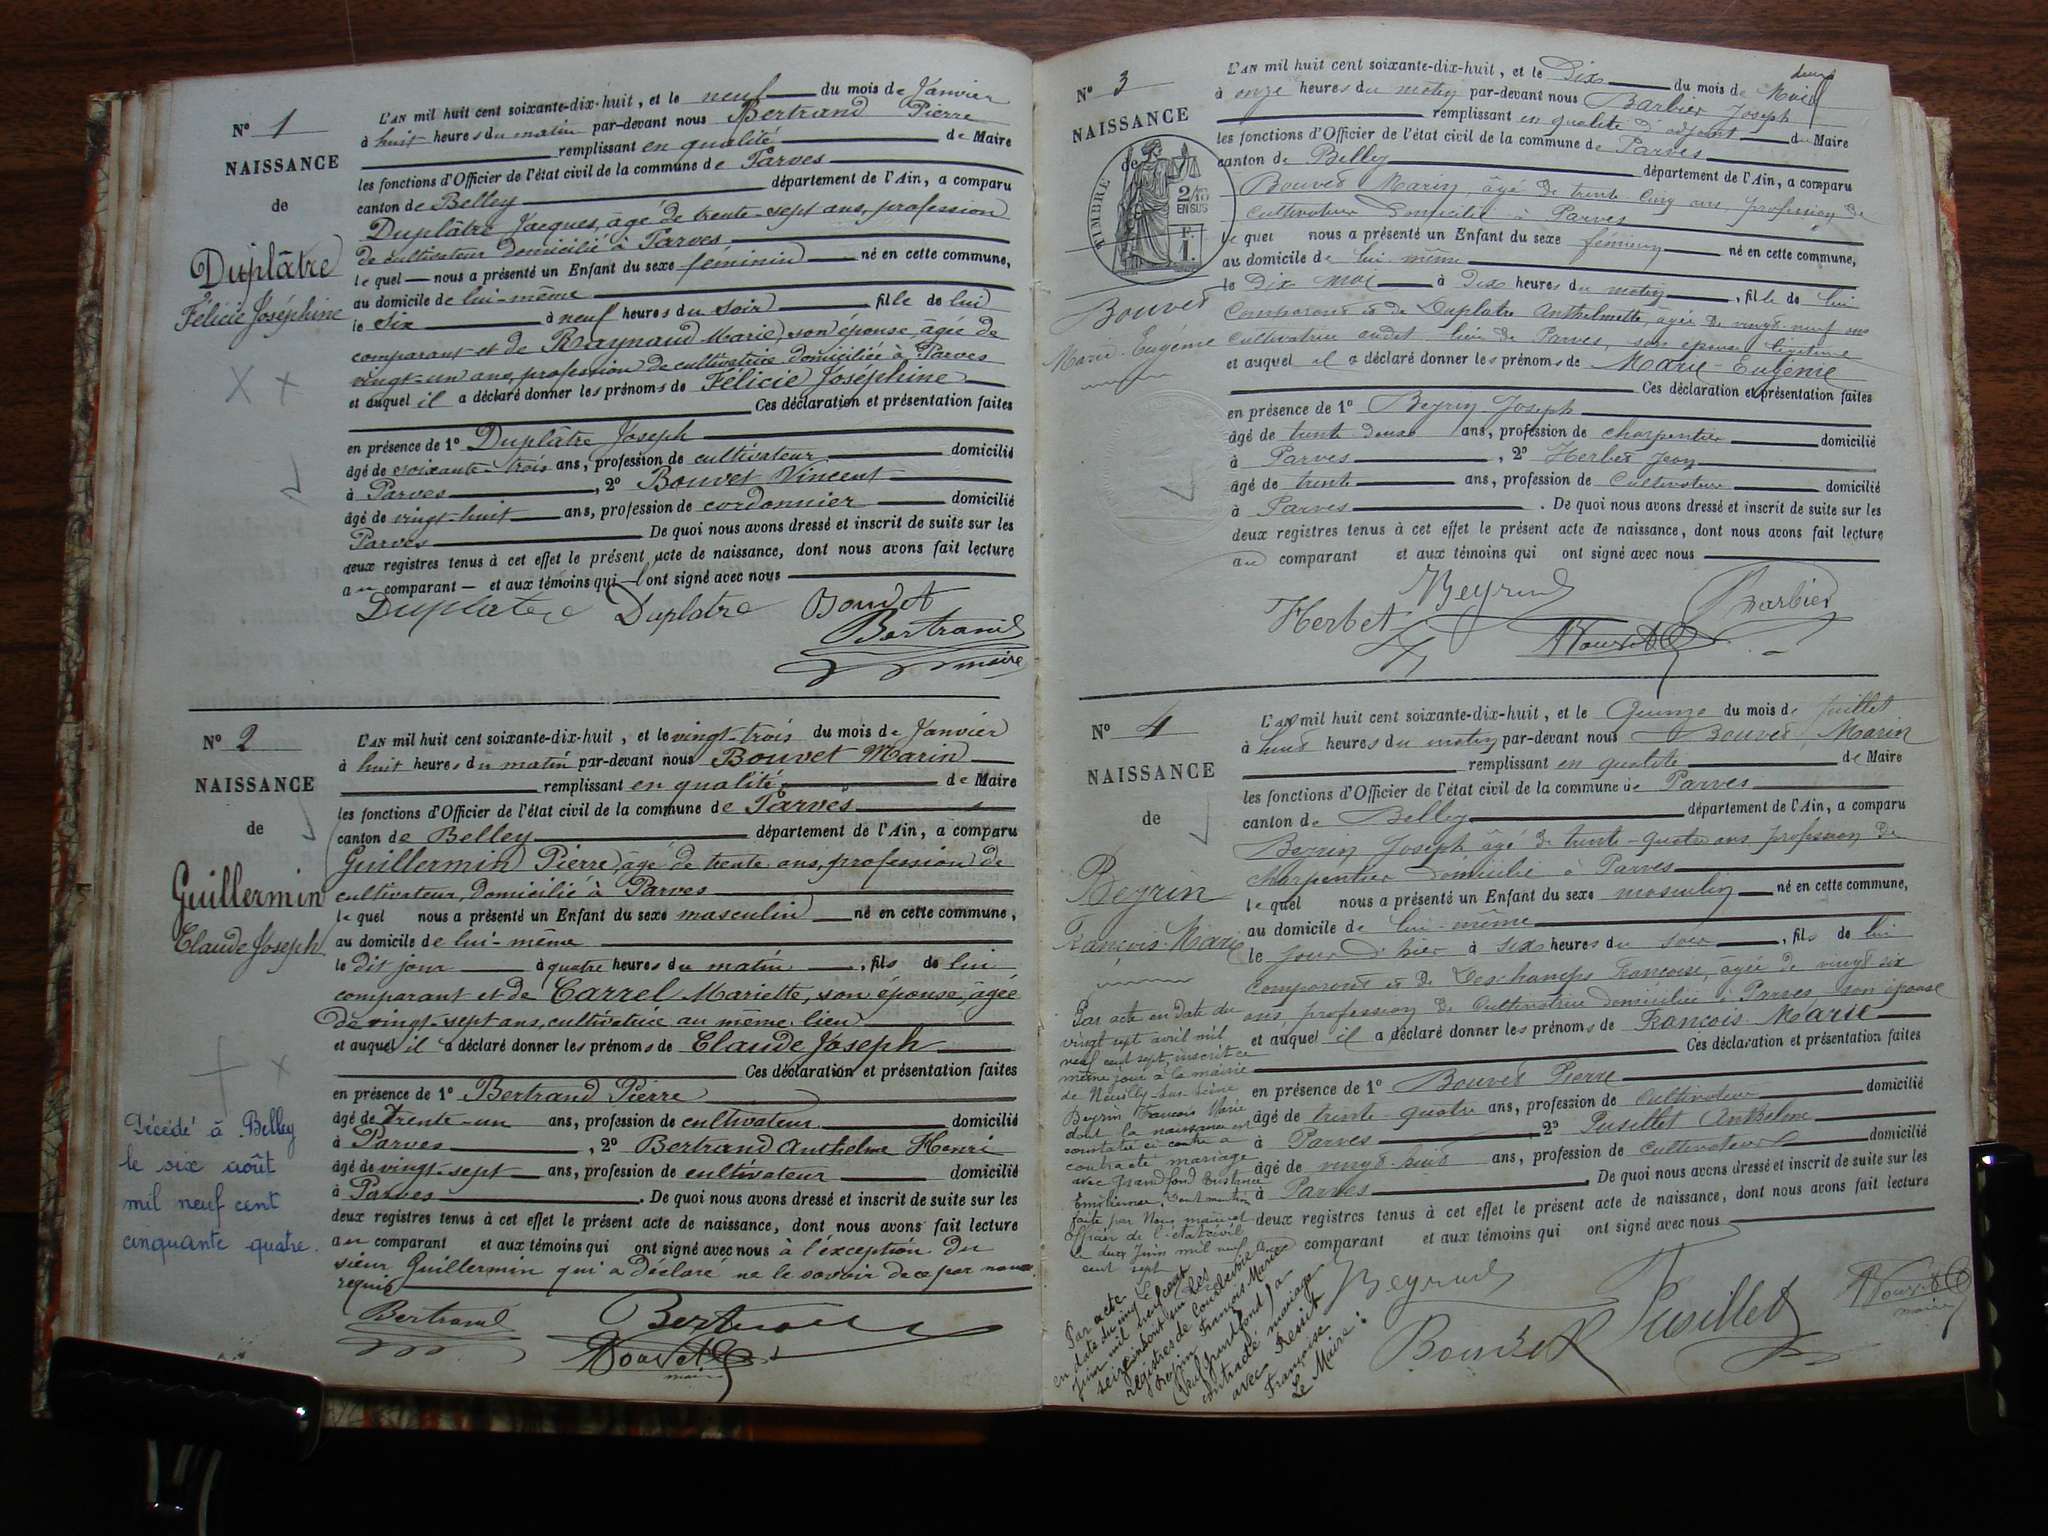 N° 1
NAISSANCE
de
Duplâtre
Félicie Joséphine
L'AN mil huit cent soixante-dix-huit, et le neuf du mois de Janvier
à huit heures du matin par-devant nous Bertrand Pierre
remplissant en qualité de Maire
les fonctions d'Officier de l'état civil de la commune de Parves
canton de Belley département de l'Ain, a comparu
Duplâtre Jacques, âgé de trente-sept ans, profession
de cultivateur domicilié à Parves
le quel nous a présenté un Enfant du sexe feminin né en cette commune,
au domicile de lui-même
le six à neuf heures du soir fille de lui
comparant et de Raynaud Marie, son épouse âgée de
vingt-un ans, profession de cultivatrice domiciliée à Parves
et auquel il a déclaré donner les prénoms de Félicie Joséphine
Ces déclaration et présentation faites
en présence de 1° Duplâtre Joseph
âgé de soixante-trois ans, profession de cultivateur domicilié
à Parves, 2° Bouvet Vincent
âgé de vingt-huit ans, profession de cordonnier domicilié
Parves De quoi nous avons dressé et inscrit de suite sur les
deux registres tenus à cet effet le présent acte de naissance, dont nous avons fait lecture
au comparant et aux témoins qui ont signé avec nous
Duplatre Duplatre Bouvet
Bertrand
maire
N° 2
NAISSANCE
de
Guillermin
Claude Joseph
L'AN mil huit cent soixante-dix-huit, et le vingt-trois du mois de Janvier
à huit heures du matin par-devant nous Bouvet Marin
remplissant en qualité de Maire
les fonctions d'Officier de l'état civil de la commune de Parves
canton de Belley département de l'Ain, a comparu
Guillermin Pierre, âgé de trente ans, profession de
cultivateur, domicilié à Parves
le quel nous a présenté un Enfant du sexe masculin né en cette commune,
au domicile de lui-même
le dit jour à quatre heures du matin, fils de lui
comparant et de Carrel Mariette, son épouse, âgée
de vingt-sept ans, cultivatrice au même lieu
et auquel il a déclaré donner les prénoms de Claude Joseph
Ces déclaration et présentation faites
en présence de 1° Bertrand Pierre
âgé de trente-un ans, profession de cultivateur domicilié
à Parves, 2° Bertrand Anthelme Henri
âgé de vingt-sept ans, profession de cultivateur domicilié
à Parves. De quoi nous avons dressé et inscrit de suite sur les
deux registres tenus à cet effet le présent acte de naissance, dont nous avons fait lecture
au comparant et aux témoins qui ont signé avec nous à l'exception du
sieur Guillermin qui a déclaré ne le savoir de ce par nous
requis
Décédé à Belley
le six août
mil neuf cent
cinquante quatre.
Bertrand Bertrand
Bouvet
maire
N° 3
NAISSANCE
de
TIMBRE
2/10
EN SUS
F.
1.
Bouvet
Marie-Eugénie
L'AN mil huit cent soixante-dix-huit, et le Dix du mois de Mai
à onze heures du matin par-devant nous Barbier Joseph
remplissant en qualité d'adjoint du Maire
les fonctions d'Officier de l'état civil de la commune de Parves
canton de Belley département de l'Ain, a comparu
Bouvet Marin, âgé de trente cinq ans, profession de
Cultivateur domicilié à Parves
le quel nous a présenté un Enfant du sexe féminin né en cette commune,
au domicile de lui-même
le Dix mai à Dix heures du matin, fille de lui
Comparant et de Duplatre Anthelmette, âgée de vingt-neuf ans
Cultivatrice audit lieu de Parves, son épouse légitime
et auquel il a déclaré donner les prénoms de Marie-Eugénie
Ces déclaration et présentation faites
en présence de 1° Beyrin Joseph
âgé de trente-deux ans, profession de charpentier domicilié
à Parves, 2° Herbet Jean
âgé de trente ans, profession de Cultivateur domicilié
à Parves. De quoi nous avons dressé et inscrit de suite sur les
deux registres tenus à cet effet le présent acte de naissance, dont nous avons fait lecture
au comparant et aux témoins qui ont signé avec nous
Beyrin Barbier
Herbet Bouvet
N° 4
NAISSANCE
de
Beyrin
François-Marie
L'AN mil huit cent soixante-dix-huit, et le Quinze du mois de Juillet
à huit heures du matin par-devant nous Bouvet Marin
remplissant en qualité de Maire
les fonctions d'Officier de l'état civil de la commune de Parves
canton de Belley département de l'Ain, a comparu
Beyrin Joseph âgé de trente-quatre ans profession de
charpentier domicilié à Parves
le quel nous a présenté un Enfant du sexe masculin né en cette commune,
au domicile de lui-même
le jour d'hier à six heures du soir, fils de lui
Comparant et de Deschamps Françoise, âgée de vingt six
ans profession de Cultivatrice domiciliée à Parves son épouse
et auquel il a déclaré donner les prénoms de François-Marie
Ces déclaration et présentation faites
en présence de 1° Bouvet Pierre
âgé de trente-quatre ans, profession de Cultivateur domicilié
à Parves 2° Pusillet Anthelme
âgé de vingt-huit ans, profession de Cultivateur domicilié
à Parves. De quoi nous avons dressé et inscrit de suite sur les
deux registres tenus à cet effet le présent acte de naissance, dont nous avons fait lecture
au comparant et aux témoins qui ont signé avec nous
Par acte en date du
vingt sept avril mil
neuf cent sept, inscrit ce
même jour à la mairie
de Neuilly-sur-Seine
Beyrin François Marie
dont la naissance est
constatée ci-contre a
contracté mariage
avec Grandfond
Emilienne. Dont mention
faite par Nous maire et
officier de l'état civil
le deux Juin mil neuf
cent sept
Par acte
en date du vingt
Juin mil neuf cent
seize inscrit sur les
registres de
Beyrin François Marie
(veuf Grandfond) a
contracté mariage
avec
Françoise
Le Maire:
Beyrin
Bouvet Pusillet Bouvet
maire